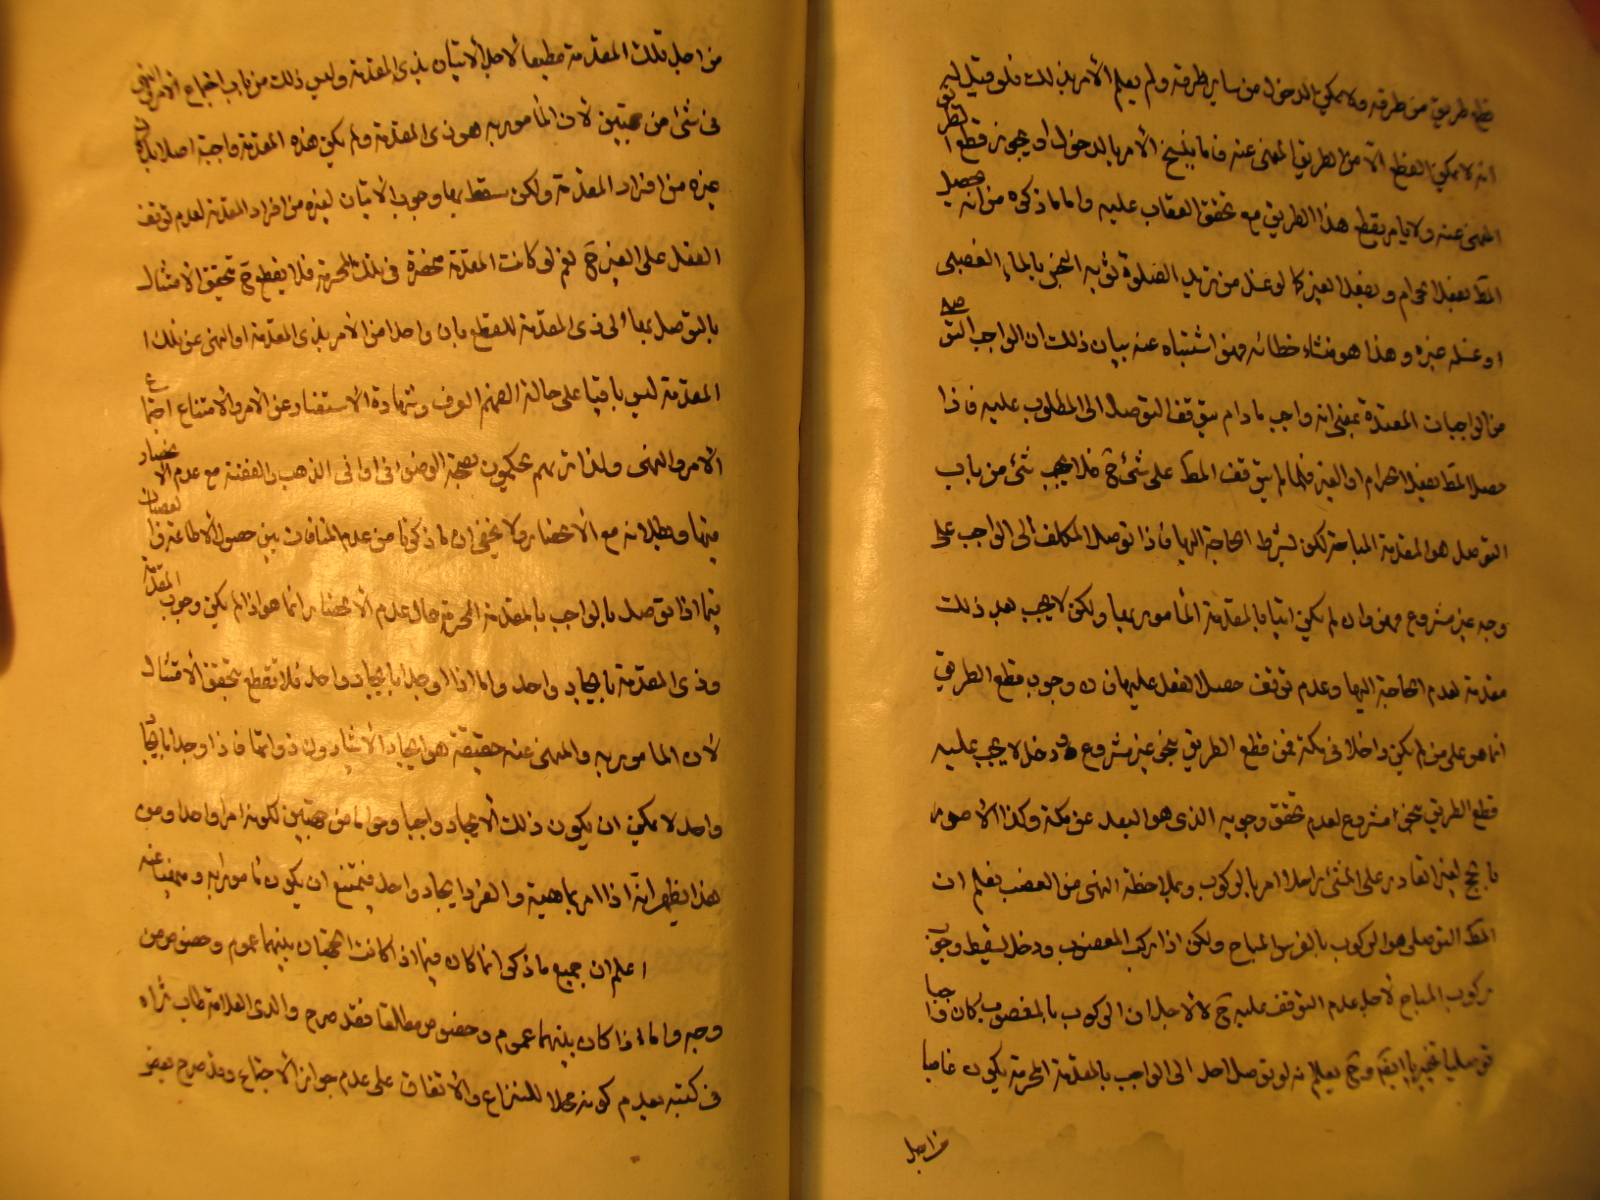 قطع طريق من طرقه ولا يمكن الدخول من ساير طرقه ولم يعلم الأمر بذلك فلو قيل له
انه لا يمكن القطع الا من الطريق المنهى عنه فاما ينسخ الأمر بالدخول او يجوز قطع الطريق
المنهى عنه ولا يأمر بقطع هذا الطريق مع تحقق العقاب عليه واما ما ذكره من انه يحصل
المط بفعل الحرام وبفعل الغير كما لو غسل من يريد الصلوة ثوبه النجس بالماء الغصبى
او غسله غيره وهذا هو منشاء خطائه فهو اشتباه عنه بيان ذلك ان الواجب التوصلى
من الواجبات المقيدة بمعنى انه واجب ما دام يتوقف التوصل الى المطلوب عليه فاذا
حصل المط بفعل الحرام او الغير فلما لم يتوقف المط على شئ ح فلا يجب شئ من باب
التوصل هو المقدمة المباحة لكن بشرط الحاجة اليها فاذا توصل المكلف الى الواجب على
وجه غير مشروع فهو وان لم يكن اتيا بالمقدمة المأمور بها ولكن لا يجب بعد ذلك
مقدمة لعدم الحاجة اليها وعدم توقف حصول الفعل عليها فان وجوب قطع الطريق
انما هو على من لم يكن داخلا فى مكة فمن قطع الطريق بنحو غير مشروع ودخل لا يجب عليه
قطع الطريق بنحو مشروع لعدم تحقق وجوبه الذى هو البعد عن مكة وكذا الأمور
بالحج لغير القادر على المشى راجلا امر بالركوب وبملاحظة النهى من الغصب يعلم ان
المط التوصلى هو الركوب بالفرس المباح ولكن اذا ركب المغصوب ودخل يسقط وجوب
ركوب المباح لأجل عدم التوقف عليه ح لا لأجل ان الركوب بالمغصوب كان واجبا
توصليا تخييريا ايضا وح يعلم انه لو توصل احد الى الواجب بالمقدمة المحرمة يكون عاصيا
من اجل
من اجل تلك المقدمة مطيعا لأجل الأتيان بذى المقدمة وليس ذلك من باب اجتماع الأمر والنهى
فى شئ من جهتين لأن المأمور به هو ذى المقدمة ولم يكن هذه المقدمة واجبة اصلا بل كان
غيره من افراد المقدمة ولكن سقط بها وجوب الأتيان لغيره من افراد المقدمة لعدم توقف
الفعل على الغير ح نعم لو كانت المقدمة منحصرة فى تلك المحرمة فلا يقطع ح تحقق الامتثال
بالتوصل بها الى ذى المقدمة للقطع بان واحدا من الأمر بذى المقدمة او النهى عن تلك ا
المقدمة ليس باقيا على حالة الفهم العرف وشهادة الأستفادة عن الأمر والأمتناع اجتماع
الأمر والنهى ولذا تريهم يحكمون بصحة الوضوء فى اوانى الذهب والفضة مع عدم الانحصار
فيها وبطلانه مع الأنحصار ولا يخفى ان ما ذكرنا من عدم المنافات بين حصول الأطاعة والعصيان
فيما اذا توصل بالواجب بالمقدمة المحرمة حال عدم الأنحصار انما هو اذا لم يكن وجوب المقدمة
وذى المقدمة بايجاد واحد واما اذا اوجدا بايجاد واحد فلا تقطع بتحقق الأمتثال
لأن المأمور به والمنهى عنه حقيقة هو ايجاد الأشياء دون ذواتها فاذا اوجدا بايجاد
واحد لا يمكن ان يكون ذلك الأيجاد واجبا وحراما من جهتين لكونه امرا واحدا ومن
هذا يظهر انه اذا امر بماهية والفرد ايجاد واحد فيمتنع ان يكون مأمورا به ومنهيا عنه
اعلم ان جميع ما ذكر انما كان فيما اذ كانت الجهتان بينهما عموم وخصوص من
وجه واما اذا كان بينهما عموم وخصوص مطلقا فقد صرح والدى العلامة طاب ثراه
فى كتبه بعدم كونه محلا للنزاع والأتفاق على عدم جواز الأجتماع وقد صرح بعض